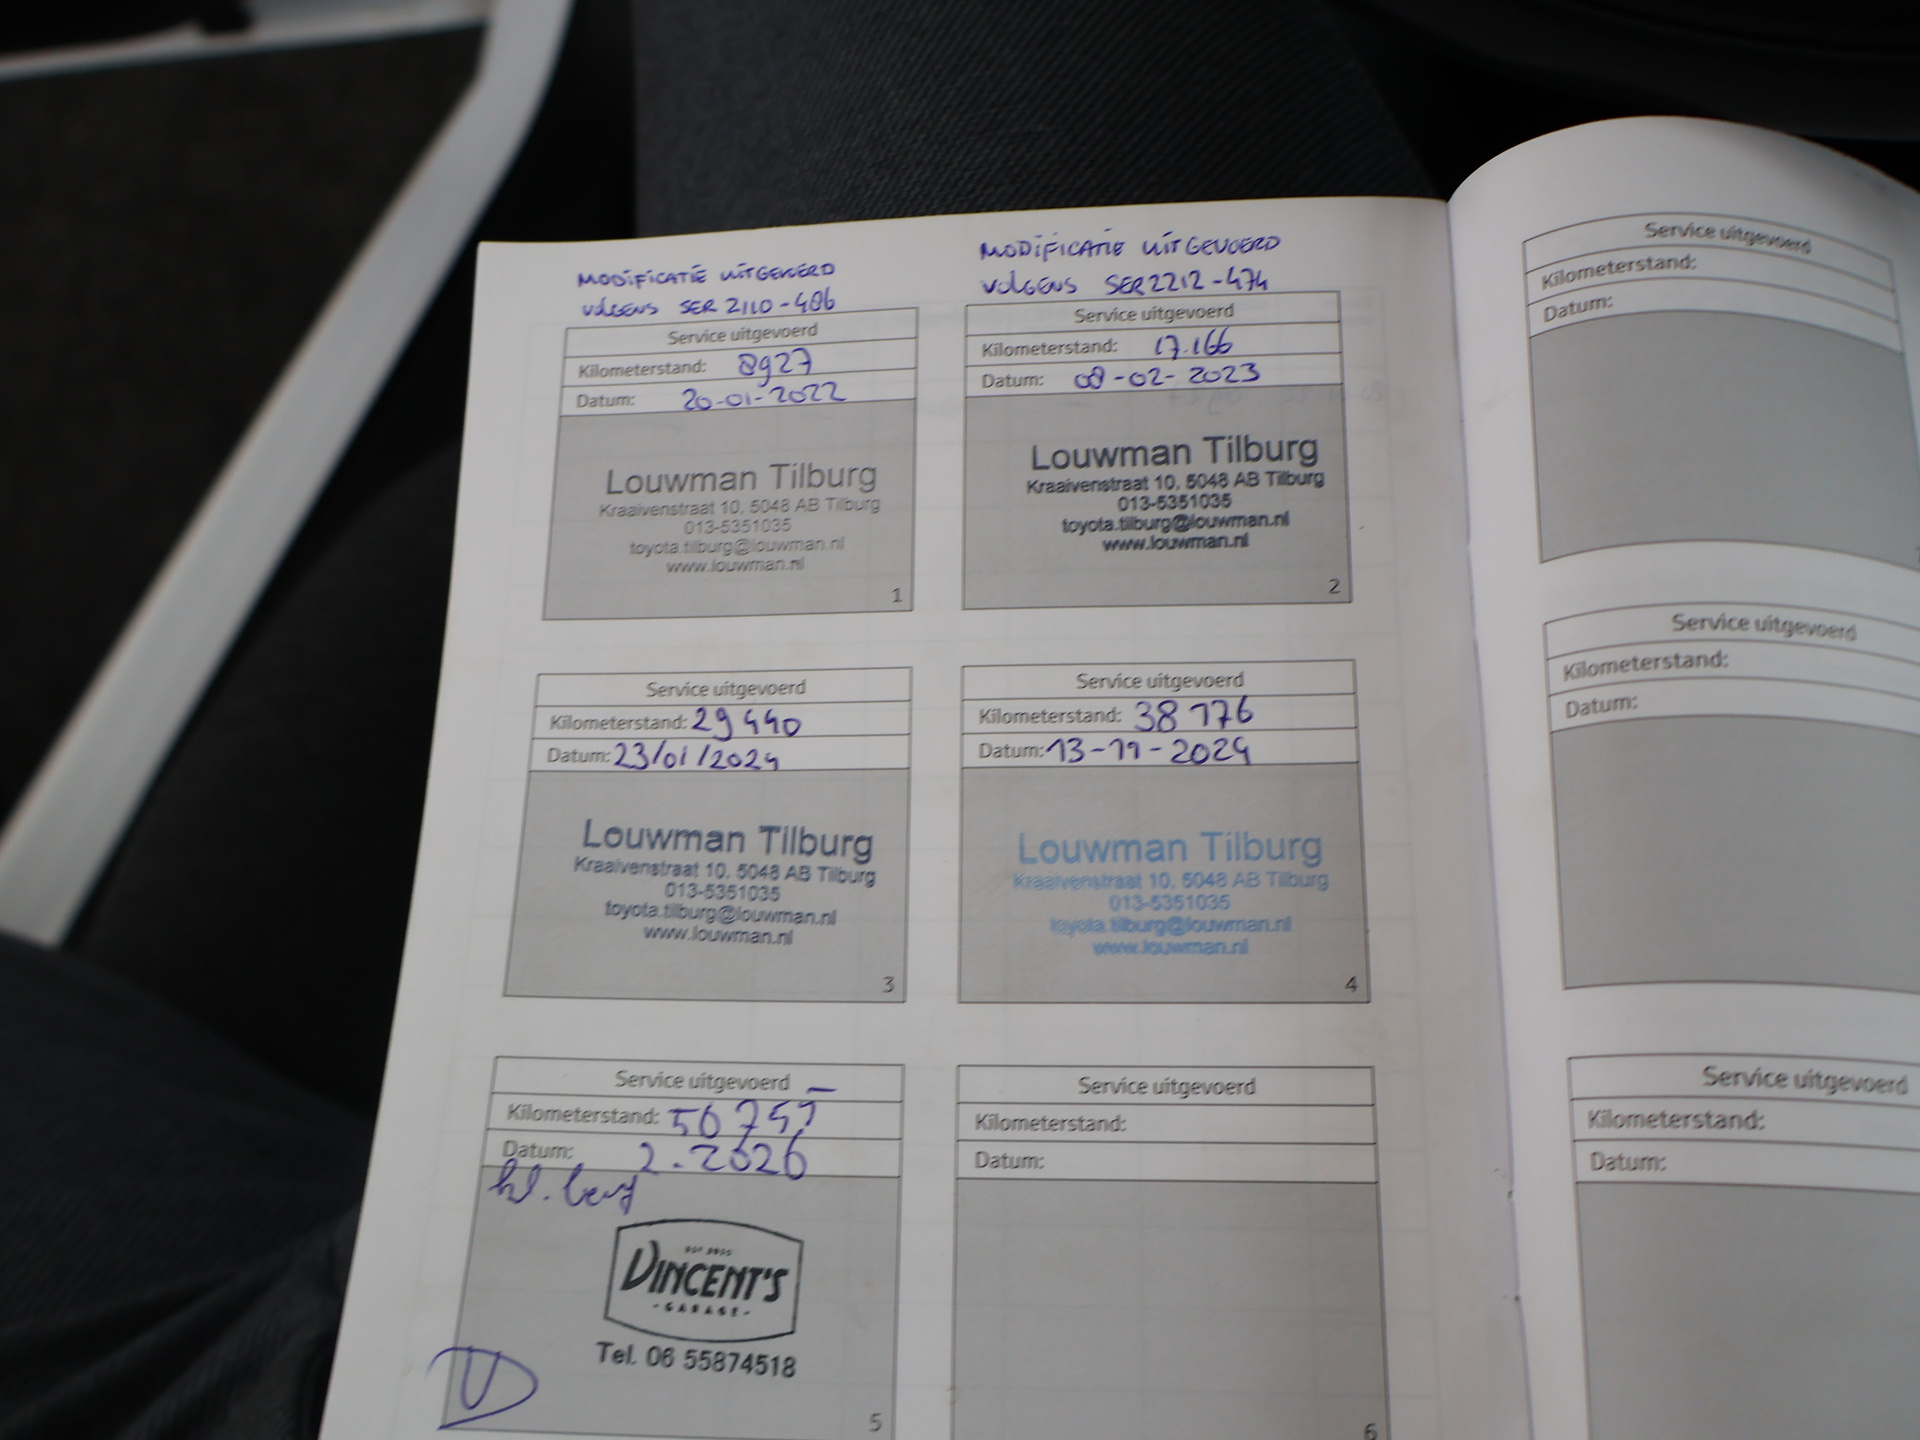 MODIFICATIE UITGEVOERD
VOLGENS SER 2110-486
Service uitgevoerd
Kilometerstand: 8927
Datum: 20-01-2022
Louwman Tilburg
Kraaivenstraat 10, 5048 AB Tilburg
013-5351035
toyota.tilburg@louwman.nl
www.louwman.nl
1
MODIFICATIE UITGEVOERD
VOLGENS SER 2212-474
Service uitgevoerd
Kilometerstand: 17.166
Datum: 08-02-2023
Louwman Tilburg
Kraaivenstraat 10, 5048 AB Tilburg
013-5351035
toyota.tilburg@louwman.nl
www.louwman.nl
2
Service uitgevoerd
Kilometerstand: 29440
Datum: 23/01/2024
Louwman Tilburg
Kraaivenstraat 10, 5048 AB Tilburg
013-5351035
toyota.tilburg@louwman.nl
www.louwman.nl
3
Service uitgevoerd
Kilometerstand: 38176
Datum: 13-11-2024
Louwman Tilburg
Kraaivenstraat 10, 5048 AB Tilburg
013-5351035
toyota.tilburg@louwman.nl
www.louwman.nl
4
Service uitgevoerd
Kilometerstand:
Datum: 2.2026
VINCENT'S
GARAGE
Tel. 06 55874518
5
Service uitgevoerd
Kilometerstand:
Datum:
6
Service uitgevoerd
Kilometerstand:
Datum:
Service uitgevoerd
Kilometerstand:
Datum:
Service uitgevoerd
Kilometerstand:
Datum: